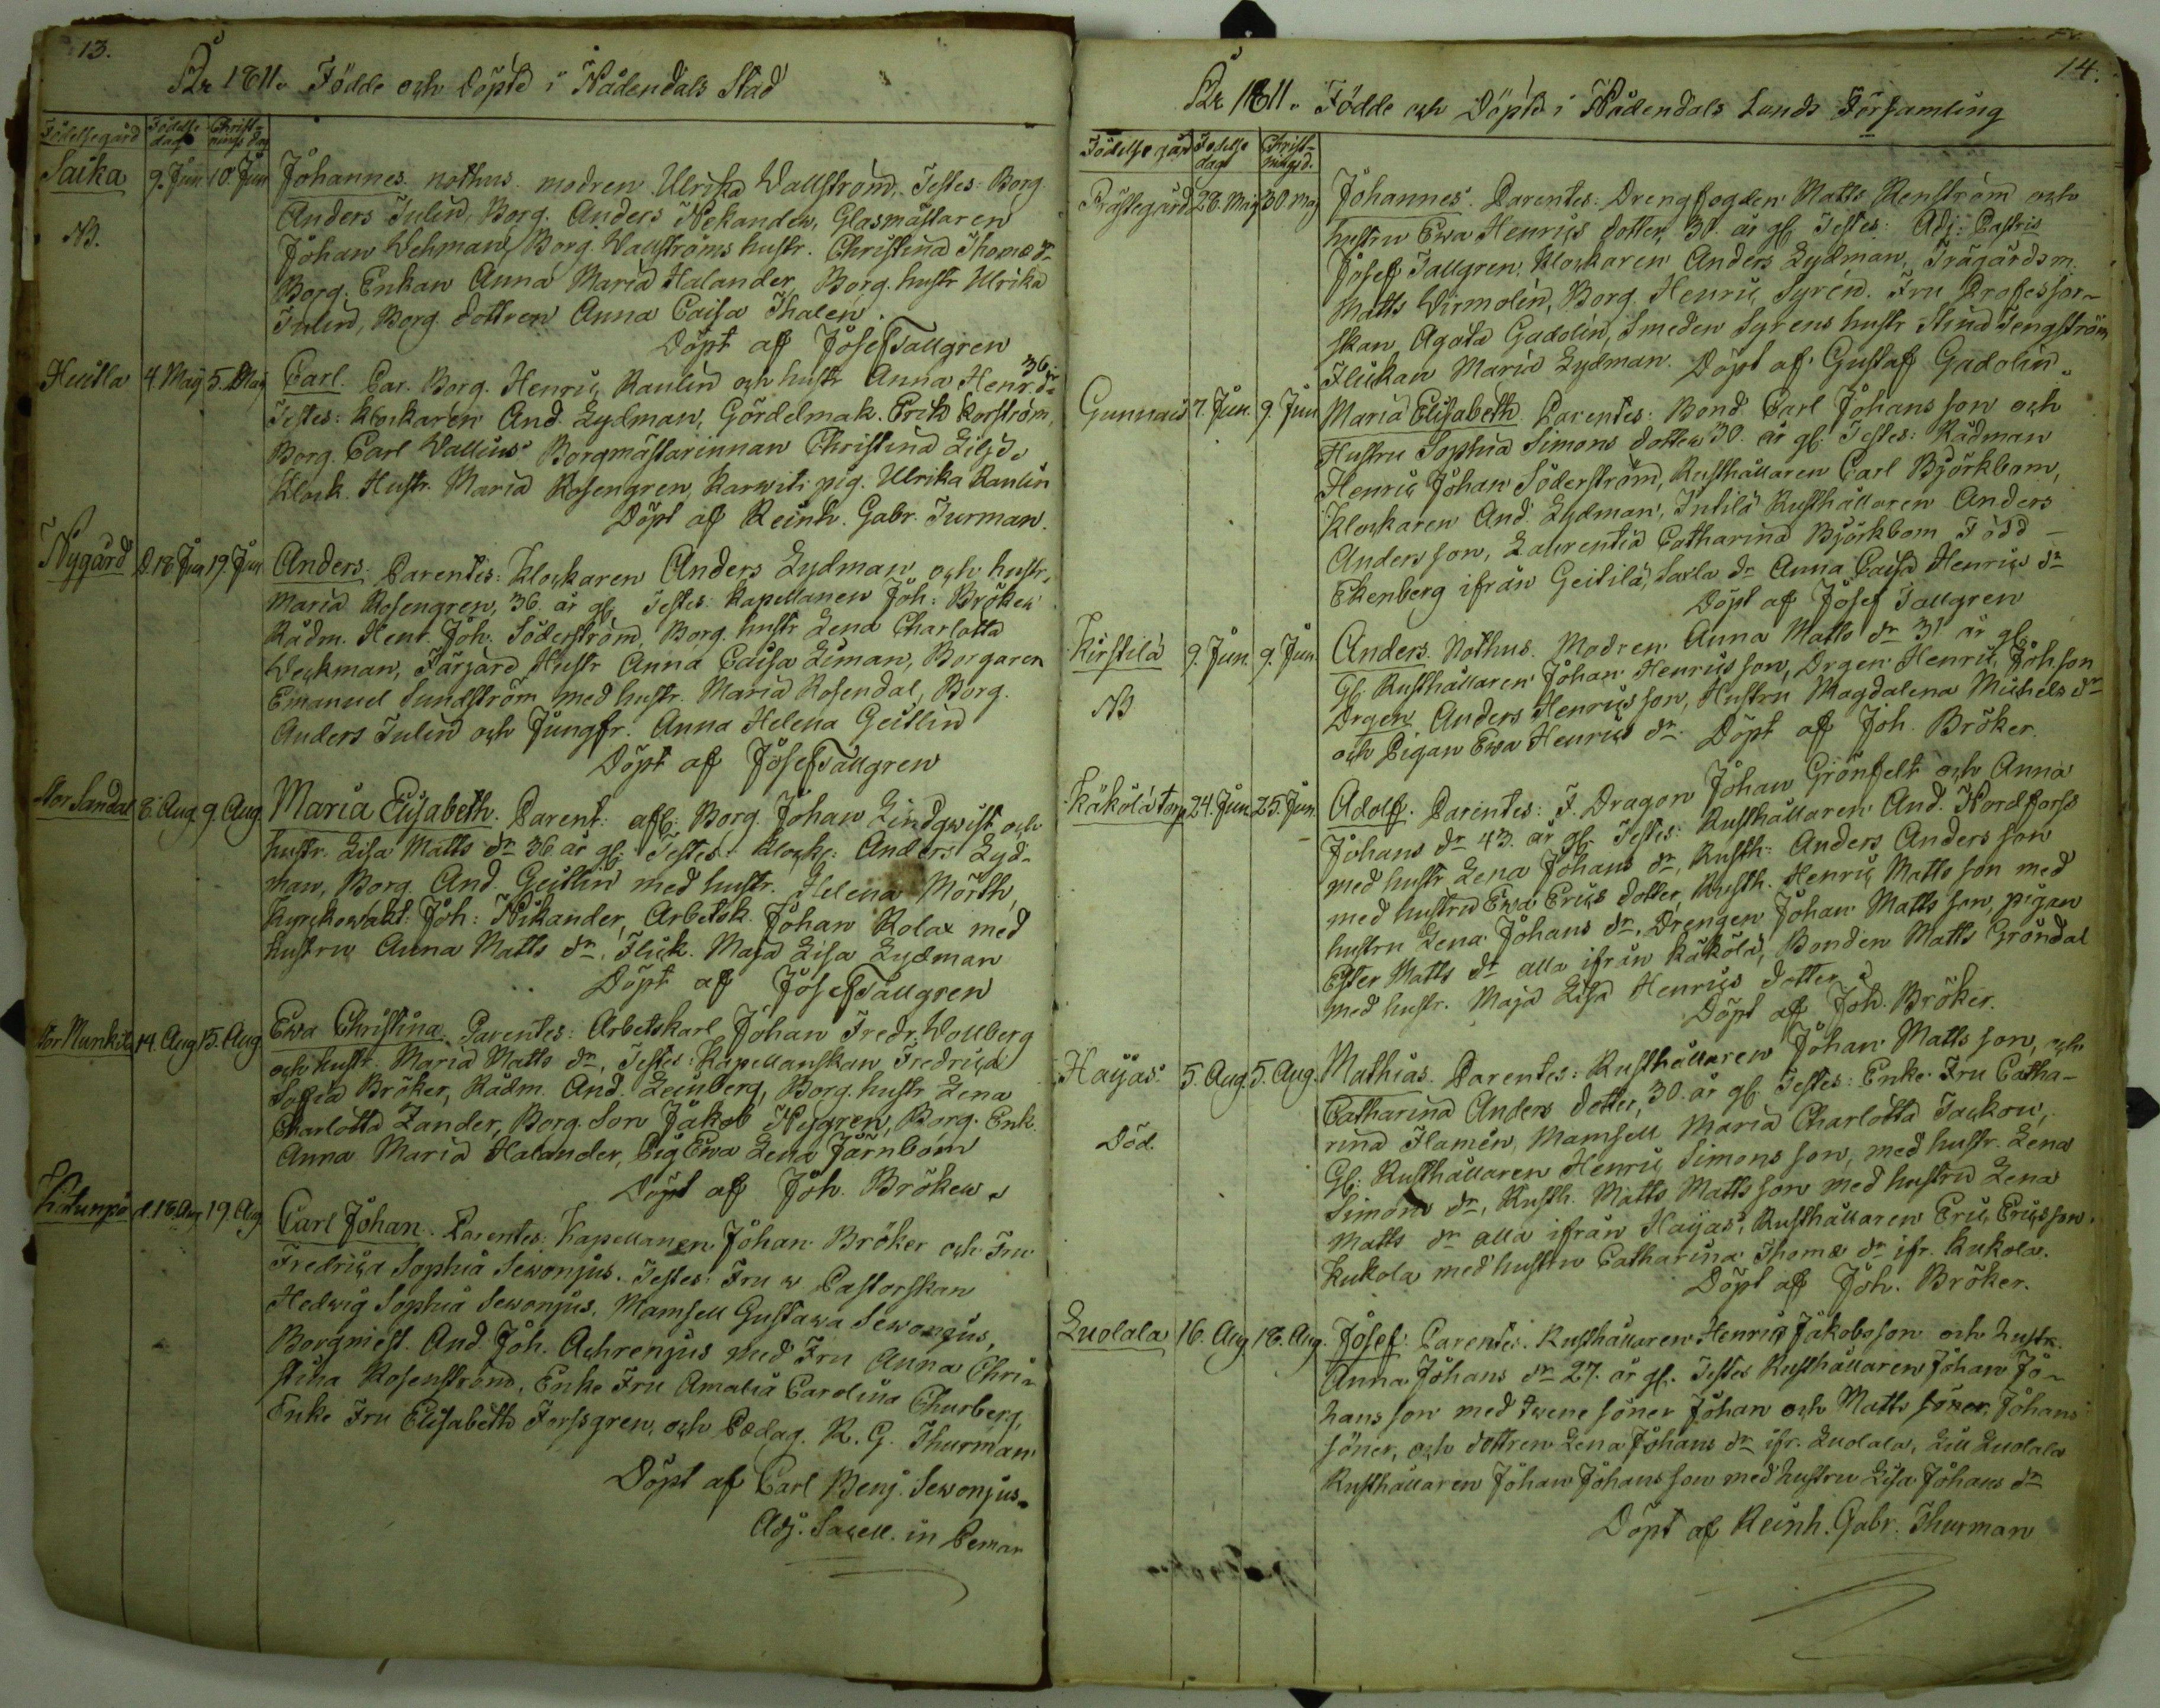 13.
År 1811. Födde och Döpte i Nådendals Stad
Födelsegård Födelse dag Christnings dag
Saika 9. Jun 10. Jun Johannes. nothus. modren Ulrika Wallström. Testes: Borg.
Anders Julin, Borg. Anders Nikander, Glasmästaren
NB. Johan Wehman, Borg. Wallströms hustr. Christina Thomæ dr
Borg. Enkan Anna Maria Halander, Borg. hustr Ulrika
Julin, Borg. dottren Anna Caisa Thalen.
Döpt af Josef Tallgren
Huitla 4. Maij 5. Maij Carl. Par. Borg. Henric Raulin och hustr Anna Henr. dr 36 år
Testes: Klockaren And. Lydman, Gördelmak. Erik Korström,
Borg. Carl Wallius Borgmästarinnan Christina Lilja,
Klock. Hustr. Maria Rosengren, Karwiti pig. Ulrika Raulin
Döpt af Reinh. Gabr. Turman.
Nygård D. 18 Jun 19. Jun Anders. Parentes: Klockaren Anders Lydman och hustr.
Maria Rosengren, 36. år gl. Testes: Kapellanen Joh: Bröker
Rådm. Henr. Joh. Söderström, Borg. hustr Lena Charlotta
Weckman, Färgard Hustr Anna Caisa Liman, Borgaren
Emanuel Sundström med hustr. Maria Rosendal, Borg.
Anders Julin och Jungfr. Anna Helena Geitlin
Döpt af Josef Tallgren
Stor Sandal 8. Aug 9. Aug. Maria Elisabeth. Parent: afl: Borg. Johan Lindqwist och
hustr. Lisa Matts dr 36 år gl. Testes: Klock: Anders Lyd-
man, Borg. And. Geitlin med hustr. Helena Mörth,
Kyrckowakt: Joh: Nikander, Arbetsk. Johan Rolax med
hustru Anna Matts dr. Flick. Maja Lisa Lydman
Döpt af Josef Tallgren
Stor Munkit 14. Aug 15. Aug Ewa Christina. Parentes: Arbetskarl Johan Fredr. Wollberg
och hustr. Maria Matts dr, Testes: Kapellanskan Fredrica
Sofia Bröker, Rådm. And. Leinberg, Borg. hustr Lena
Charlotta Zander, Borg. Son Jakob Nygren, Borg. Enk.
Anna Maria Halander, Pig Ewa Lena Järnbom
Döpt af Joh. Bröker.
Katumpä d. 18. Aug 19. Aug Carl Johan. Parentes: Kapellanen Johan Bröker och Fru
Fredrica Sophia Sewonjus. Testes: Fru w Pastorskan
Hedwig Sophia Sewonjus, Mamsell Gustawa Sewonjus,
Borgmest. And. Joh. Achrenjus med Fru Anna Chri-
stina Rosenström, Enke Fru Amalia Carolina Churberg,
Enke Fru Elisabeth Forssgren, och Pædag. R. G. Thurman
Döpt af Carl Benj. Sewonjus.
Adj. Sacell. in Pemar
14.
År 1811. Födde och Döpte i Nådendals Lands Församling
Födelse gård Födelse dag Christ-ningsd.
Prästegård 28. Maij 30 Maij Johannes. Parentes: Drengfogden Matts Renström och
hustru Ewa Henrics dotter, 31. år gl. Testes: Adj: Pastris
Josef Tallgren, Klockaren Anders Lydman, Trägårdsm:
Matts Wirmolin, Borg. Henric Syrén. Fru Professor-
skan Agata Gadolin, Smeden Syrens hustr Stina Tengström,
Flickan Maria Lydman. Döpt af Gustaf Gadolin.
Gunnais 7. Jun. 9. Jun Maria Elisabeth. Parentes: Bond. Carl Johans son och
Hustru Sophia Simons dotter 30. år gl. Testes: Rådman
Henric Johan Söderström, Rusthållaren Carl Björkbom,
Klockaren And. Lydman, Intilä Rusthållaren Anders
Anders son, Laurentia Catharina Björkbom Född -
Ekenberg ifrån Geitilä, Saxla dr Anna Caisa Henrics dr
Döpt af Josef Tallgren
Kirstilä 9. Jun. 9. Jun. Anders. Nothus. Modren Anna Matts dr 31 år gl.
Gl. Rusthållaren Johan Henricsson, Drgen Henric Joh.son
NB Drgen Anders Henricsson, Hustru Magdalena Michels dr
och Pigan Ewa Henrics dr. Döpt af Joh. Bröker.
Käkölä torp 24. Jun. 25. Jun. Adolf. Parentes: F. Dragon Johan Grönfelt och Anna
Johans dr 43. år gl. Testes: Rusthållaren And. Nordforss
med hustr Lena Johans dr, Rusth: Anders Anders son
med hustru Ewa Erics dotter, Rusth. Henric Matts son med
hustru Lena Johans dr, Drengen Johan Matts son, pigan
Ester Matts dr alla ifrån Käkölä, Bonden Matts Gröndal
med hustr. Maja Lisa Henrics dotter
Döpt af Joh. Bröker.
Haijas 5. Aug. 5. Aug. Mathias. Parentes: Rusthållaren Johan Matts son, och
Catharina Anders dotter, 30. år gl. Testes: Enke Fru Catha-
Död. rina Flamén, Mamsell Maria Charlotta Jackou,
Gl: Rusthållaren Henric Simons son, med hustr. Lena
Simons dr, Rusth. Matts Matts son med hustru Lena
Matts dr alla ifrån Haijas, Rusthållaren Eric Ericsson.
Kukola med hustru Catharina Thomæ dr ifr. Kukola.
Döpt af Joh. Bröker.
Luolala 16. Aug 18. Aug. Josef. Parentes. Rusthållaren Henric Jakobsson och hustr.
Anna Johans dr 27. år gl. Testes Rusthållaren Johan Jo-
hans son med twene söner Johan och Matts söner, Johans
söner, och dottren Lena Johans dr ifr. Luolala, Lill Luolala
Rusthållaren Johan Johans son med hustru Lisa Johans dr
Döpt af Reinh. Gabr. Thurman